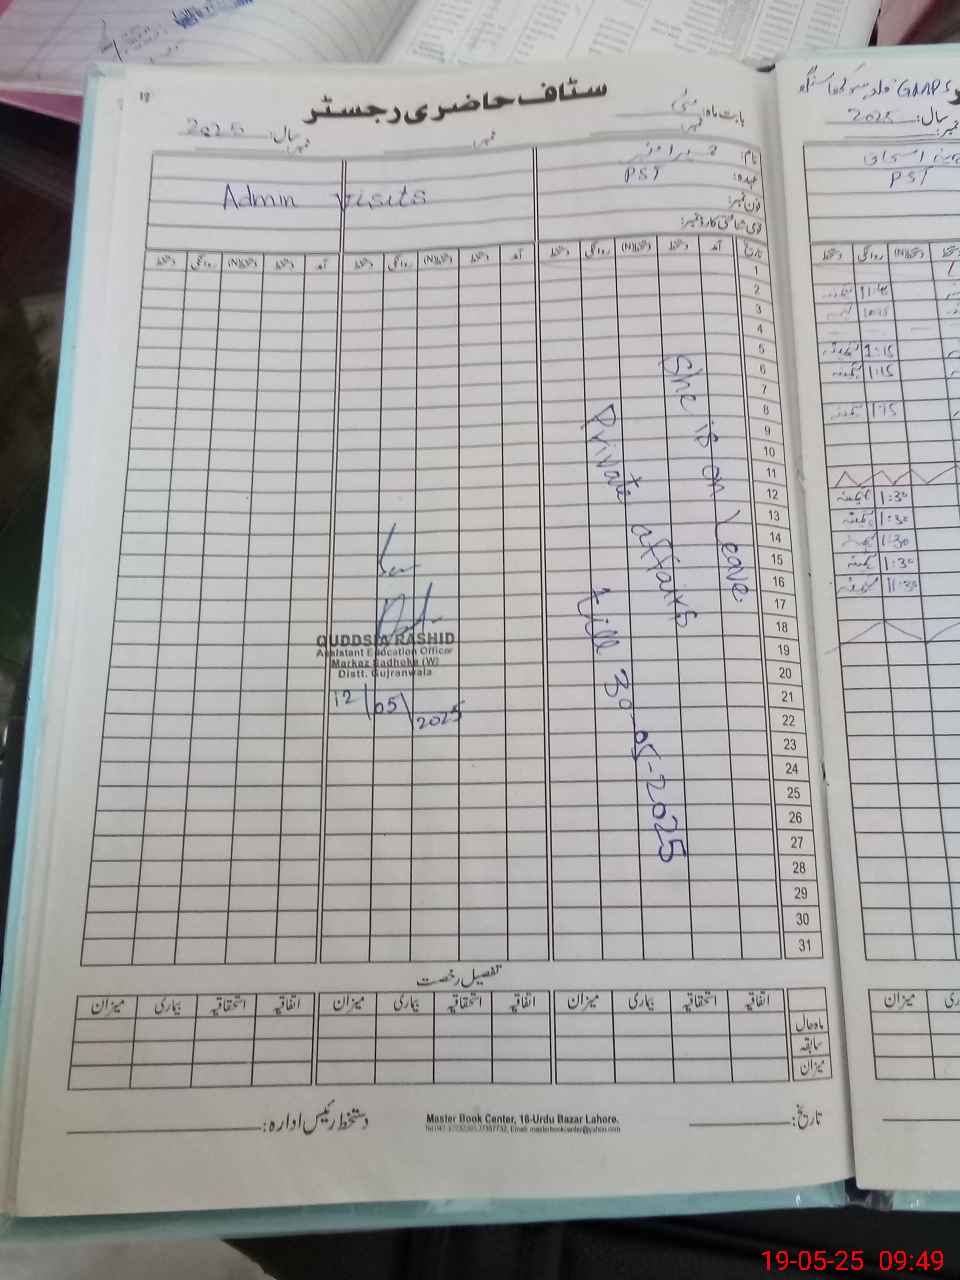 19
سٹاف حاضری رجسٹر
بابت ماہ: مئی
نمبر: نمبر: نمبر: سال: 2025
نام:
عہدہ: PST
فون نمبر:
قومی شناختی کارڈ نمبر:
Admin visits
تاریخ آمد دستخط دستخط(N) روانگی دستخط آمد دستخط دستخط(N) روانگی دستخط آمد دستخط دستخط(N) روانگی دستخط
1
2
3
4
5
6
7
8
9
10
11
12
13
14
15
16
17
18
19
20
21
22
23
24
25
26
27
28
29
30
31
She is on Leave.
Private affairs
till 30-05-2025
QUDDSIA RASHID
Assistant Education Officer
Markaz Sadhoke (W)
Distt. Gujranwala
12/05/2025
تفصیل رخصت
اتفاقیہ استحقاقیہ بیماری میزان اتفاقیہ استحقاقیہ بیماری میزان اتفاقیہ استحقاقیہ بیماری میزان
ماہ حال
سابقہ
میزان
تاریخ:
Master Book Center, 16-Urdu Bazar Lahore.
دستخط رئیس ادارہ:
GMPS
سال: 2025
نمبر:
PST
دستخط روانگی دستخط(N)
11:4
10:15
1:15
1:15
1:15
1:30
1:30
1:30
1:30
11:30
میزان
19-05-25 09:49